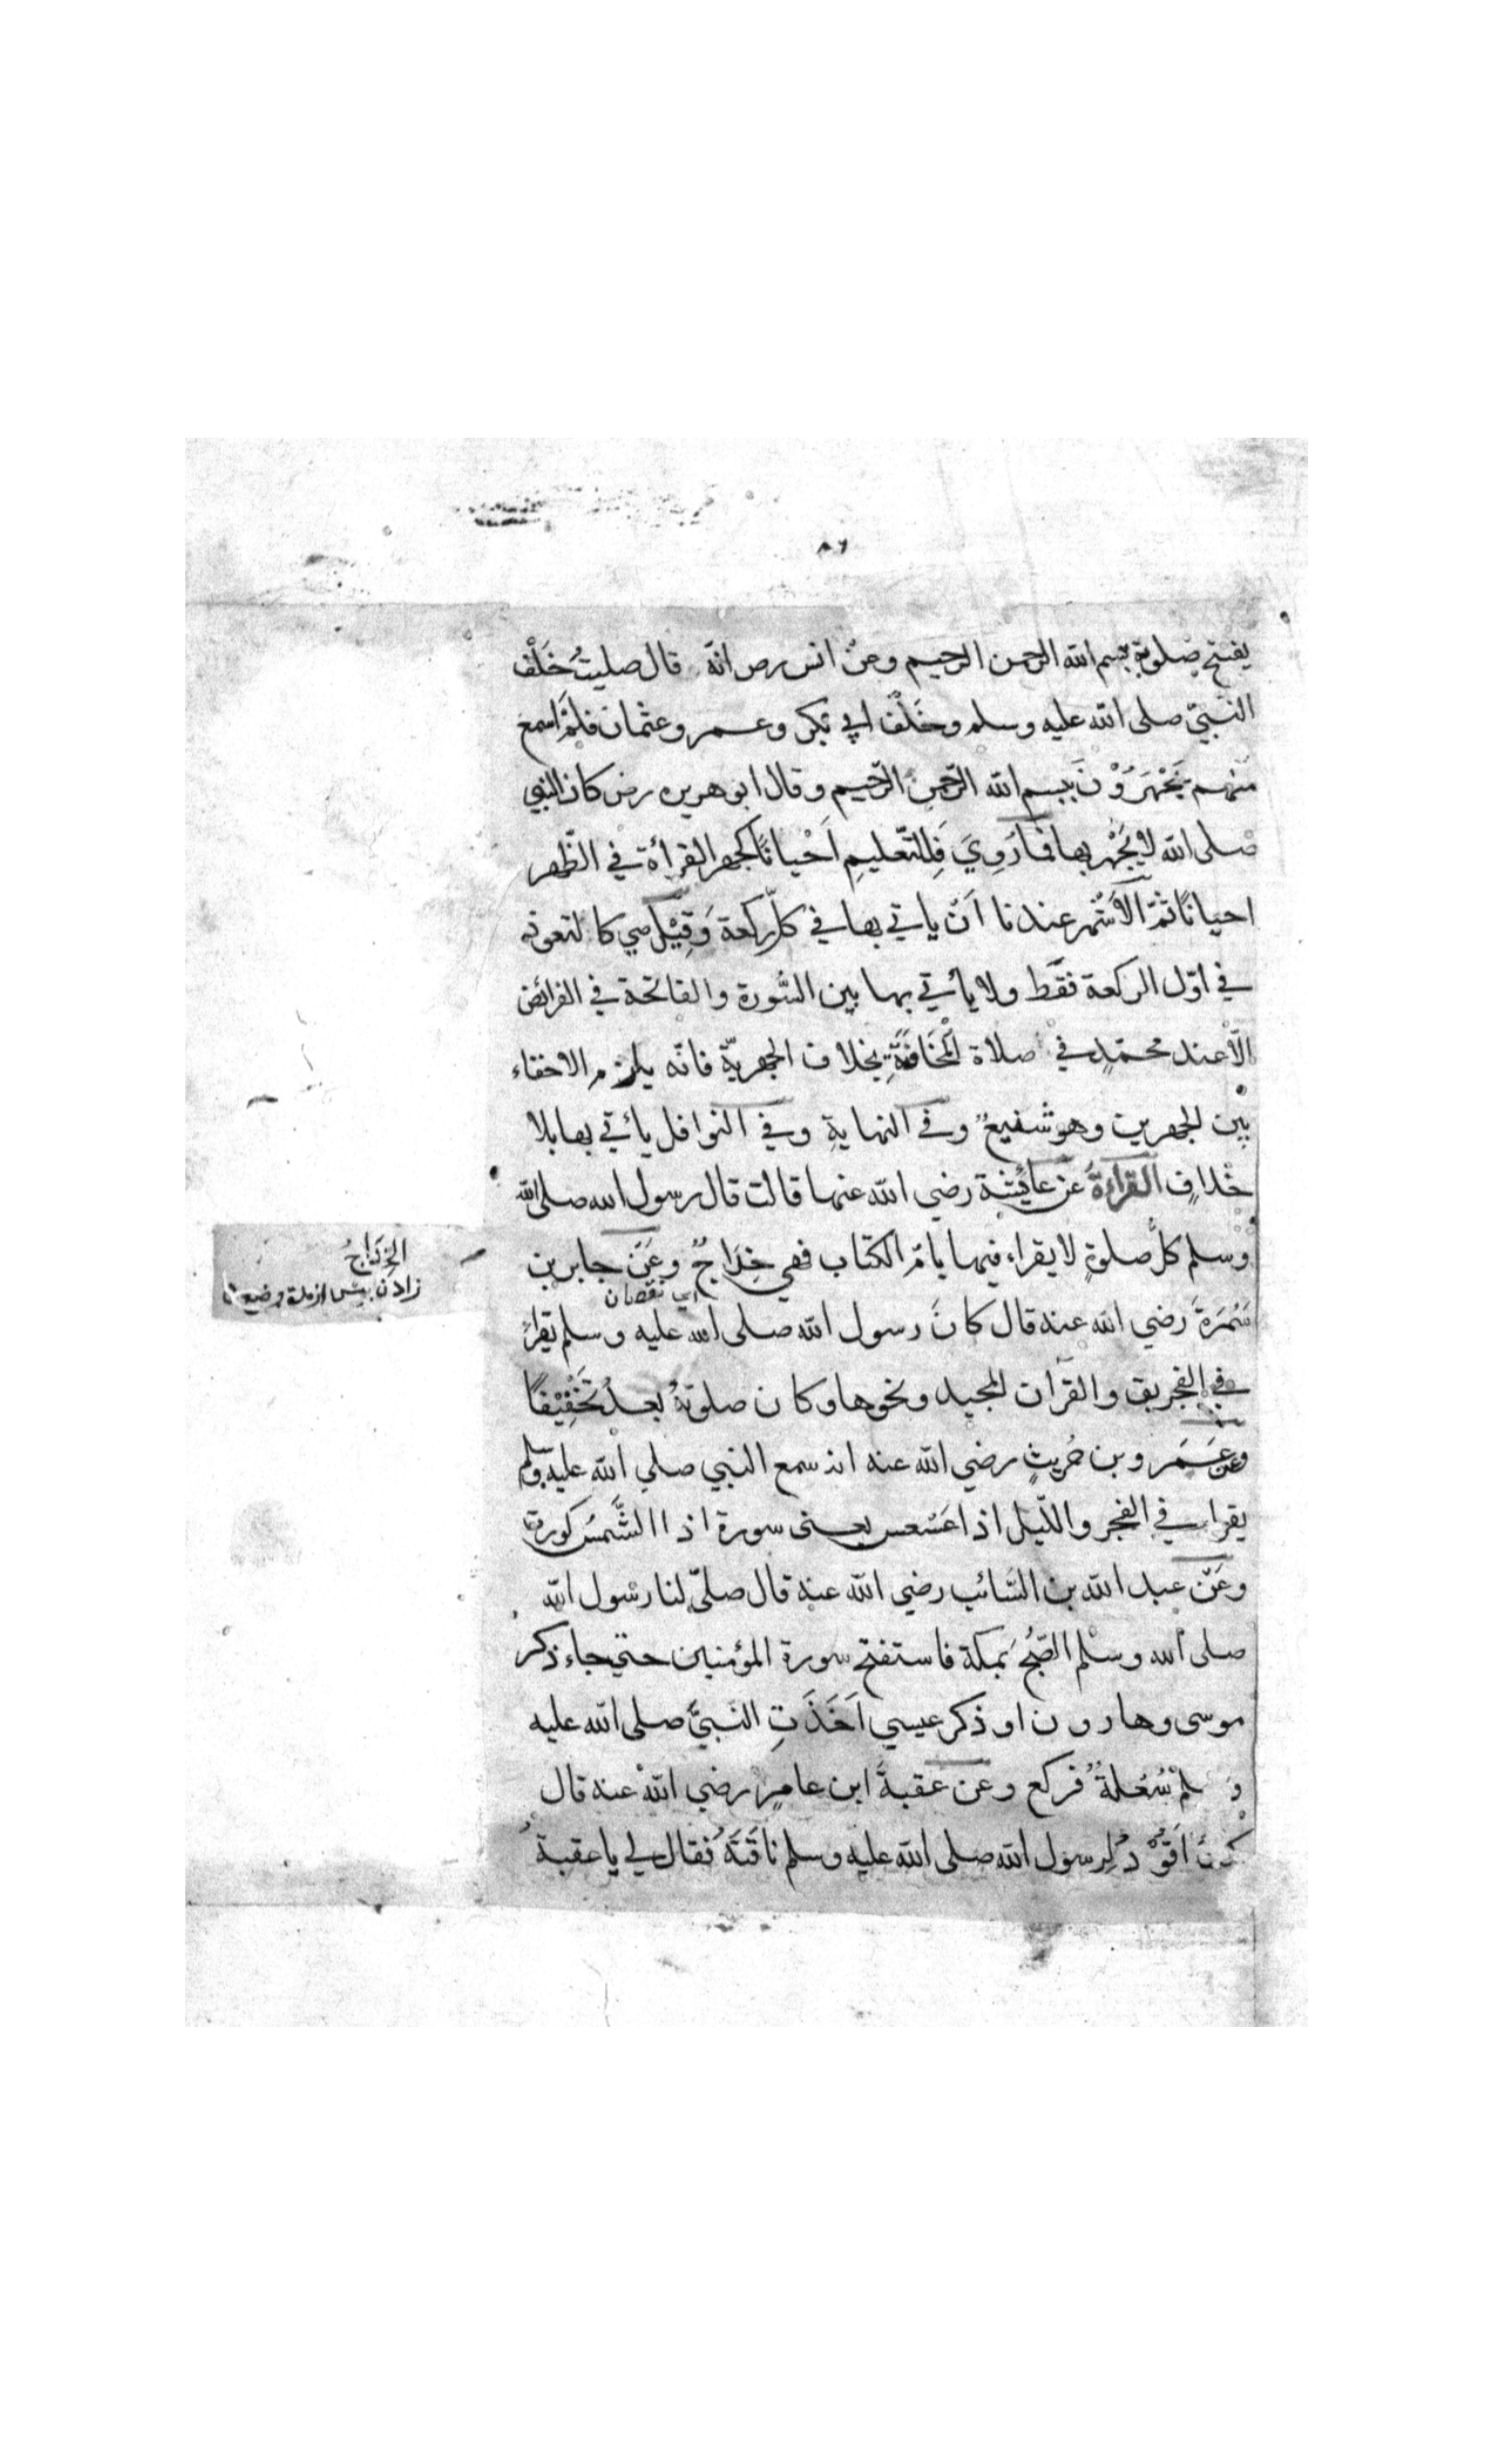 ٨٦
يفتح صلوته ببسم الله الرحمن الرحيم وعن انس رض انّه قال صليتُ خَلْفَ
النّبيّ صلى الله عليه وسلم وخَلْفَ ابي بكر وعمر وعثمان فلمْ اسمع
منهم يَجْهَرُوْنَ ببسم الله الرّحمن الرّحيم وقال ابو هريره رض كان النبي
صلى الله لا يَجْهر بها فما رُوِيَ فَلِلتّعليمِ اَحْيانًا كجهر القرأة في الظّهر
احيانًا ثمّ الاَشْهر عندنا اَنْ ياتي بها في كلّ ركعة وَقِيْل هي كالتعوذ
في اوّل الركعة فقط ولا يأتي بها بين السّورة والفاتحة في الفرائض
الّا عند محمّدٍ في صلاة المُخَافَتَةِ بخلاف الجهريّة فانّه يلزم الاخفاء
بين الجهرين وهو شفيعٌ وفي النهايةِ وفي النوافل يأتي بها بلا
خلافٍ القراءة عن عايُشة رضي الله عنها قالت قال رسول الله صلى الله
وسلم كلّ صلوةٍ لا يقراء فيها بامّ الكتاب فهي خِدَاجٌ وعَنْ جابر بن
اي نقصان
الخِدَاجُ
سَمُرَةَ رضي الله عنه قال كانَ رسول الله صلى الله عليه وسلم يقرأ
في الفجر بق والقرآن المجيد ونحوها وكان صلوتهُ بعدُ تَخْفِيْفًا
وعن عَمَرو بن حُريثٍ رضي الله عنه انه سمع النبي صلي الله عليه وسلم
يقراء في الفجر والّليل اذا عَسْعس يعنى سورة اذا الشَّمسُ كورت
وعَنْ عبد الله بن السّائب رضي الله عنه قال صلىّ لنا رسُول الله
صلى الله وسلم الصّبْحُ بمكة فاستفتح سورة المؤمنين حتي جاء ذكر
موسى وهارون او ذكر عيسي اَخَذَتِ النّبيَّ صلى الله عليه
وسلم سُعْلةٌ فركع وعن عقبةَ ابن عامرٍ رضي اللهْ عنه قال
كنت اَقُوْدُ لِرسول الله صلى الله عليه وسلم ناقَتَهُ فقال لي يا عقبة